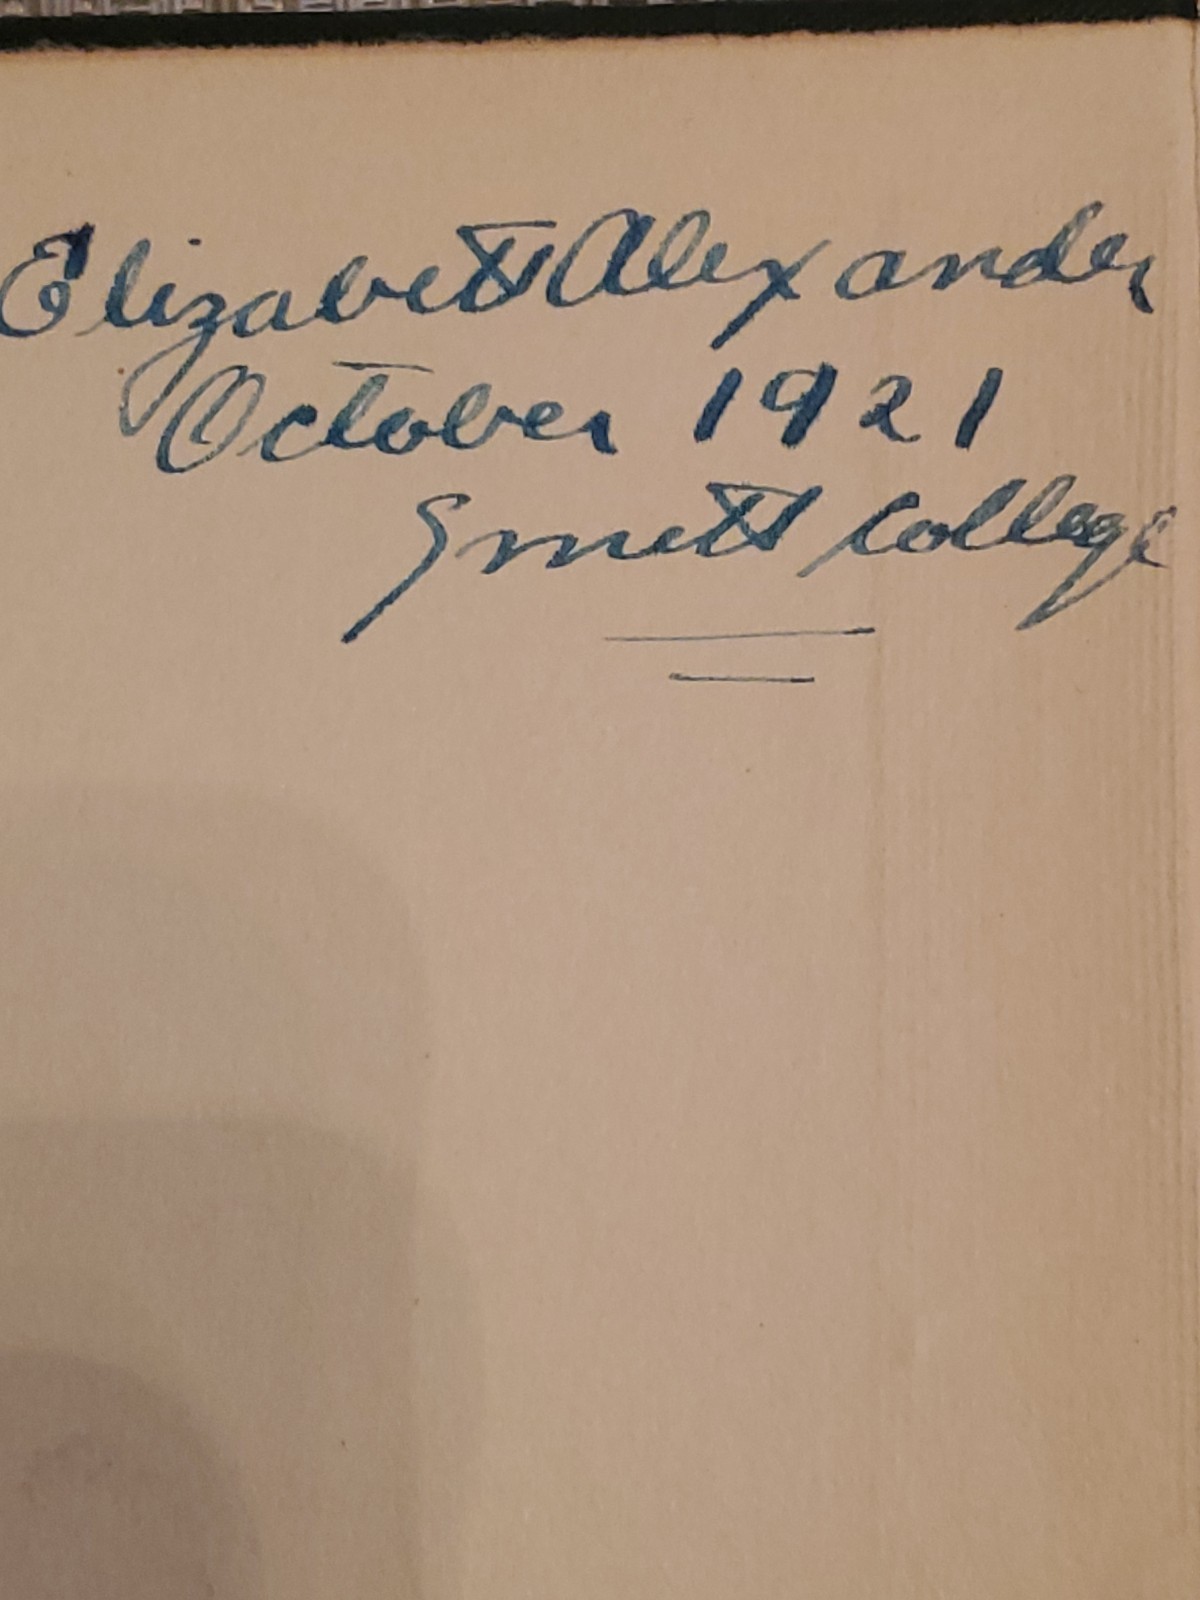 Elizabeth Alexander
October 1921
Smith College